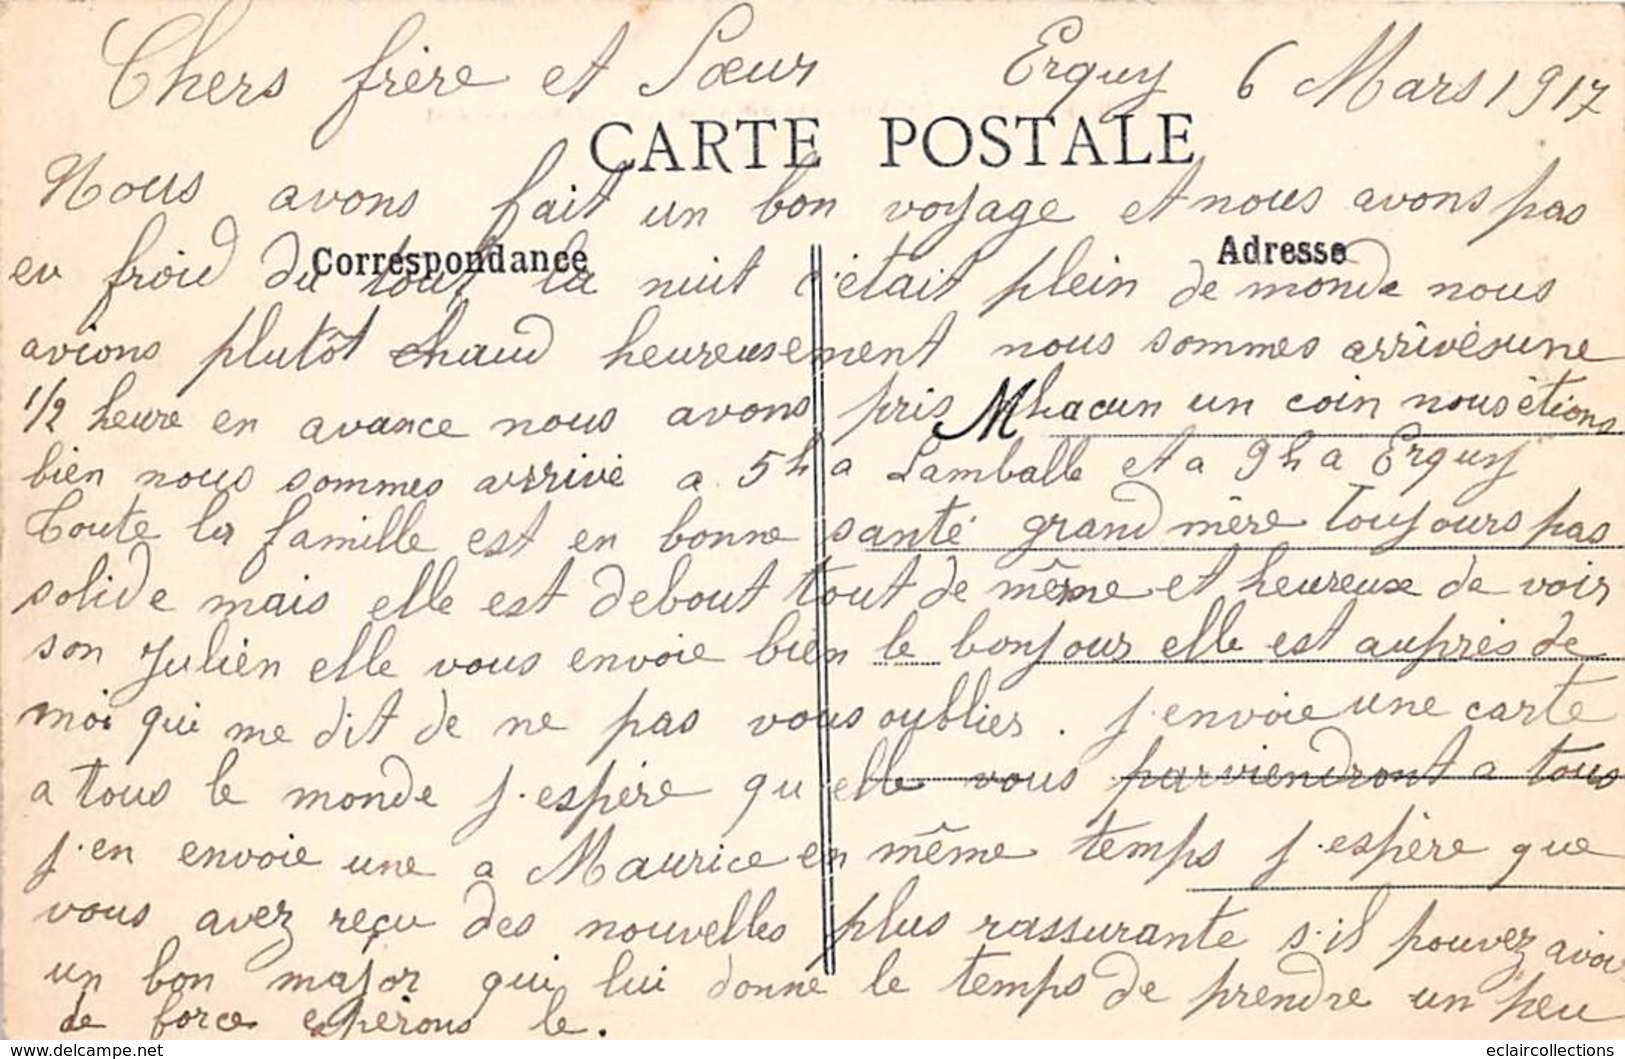 Chers frère et Sœur Erquy 6 Mars 1917
CARTE POSTALE
Nous avons fait un bon voyage et nous avons pas
Correspondance Adresse
eu froid du tout la nuit c'était plein de monde nous
avions plutôt chaud heureusement nous sommes arrivés une
1/2 heure en avance nous avons pris Mhacun un coin nous étions
bien nous sommes arrivé a 5h a Lamballe et a 9h a Erquy
Toute la famille est en bonne santé grand mère toujours pas
solide mais elle est debout tout de même et heureuse de voir
son Julien elle vous envoie bien le bonjour elle est auprès de
moi qui me dit de ne pas vous oublier. j'envoie une carte
a tous le monde j'espère qu'elle vous parviendront a tous
j'en envoie une a Maurice en même temps j'espère que
vous avez reçu des nouvelles plus rassurante s'il pouvez avoir
un bon major qui lui donne le temps de prendre un peu
de force espérons le.
eclaircollections